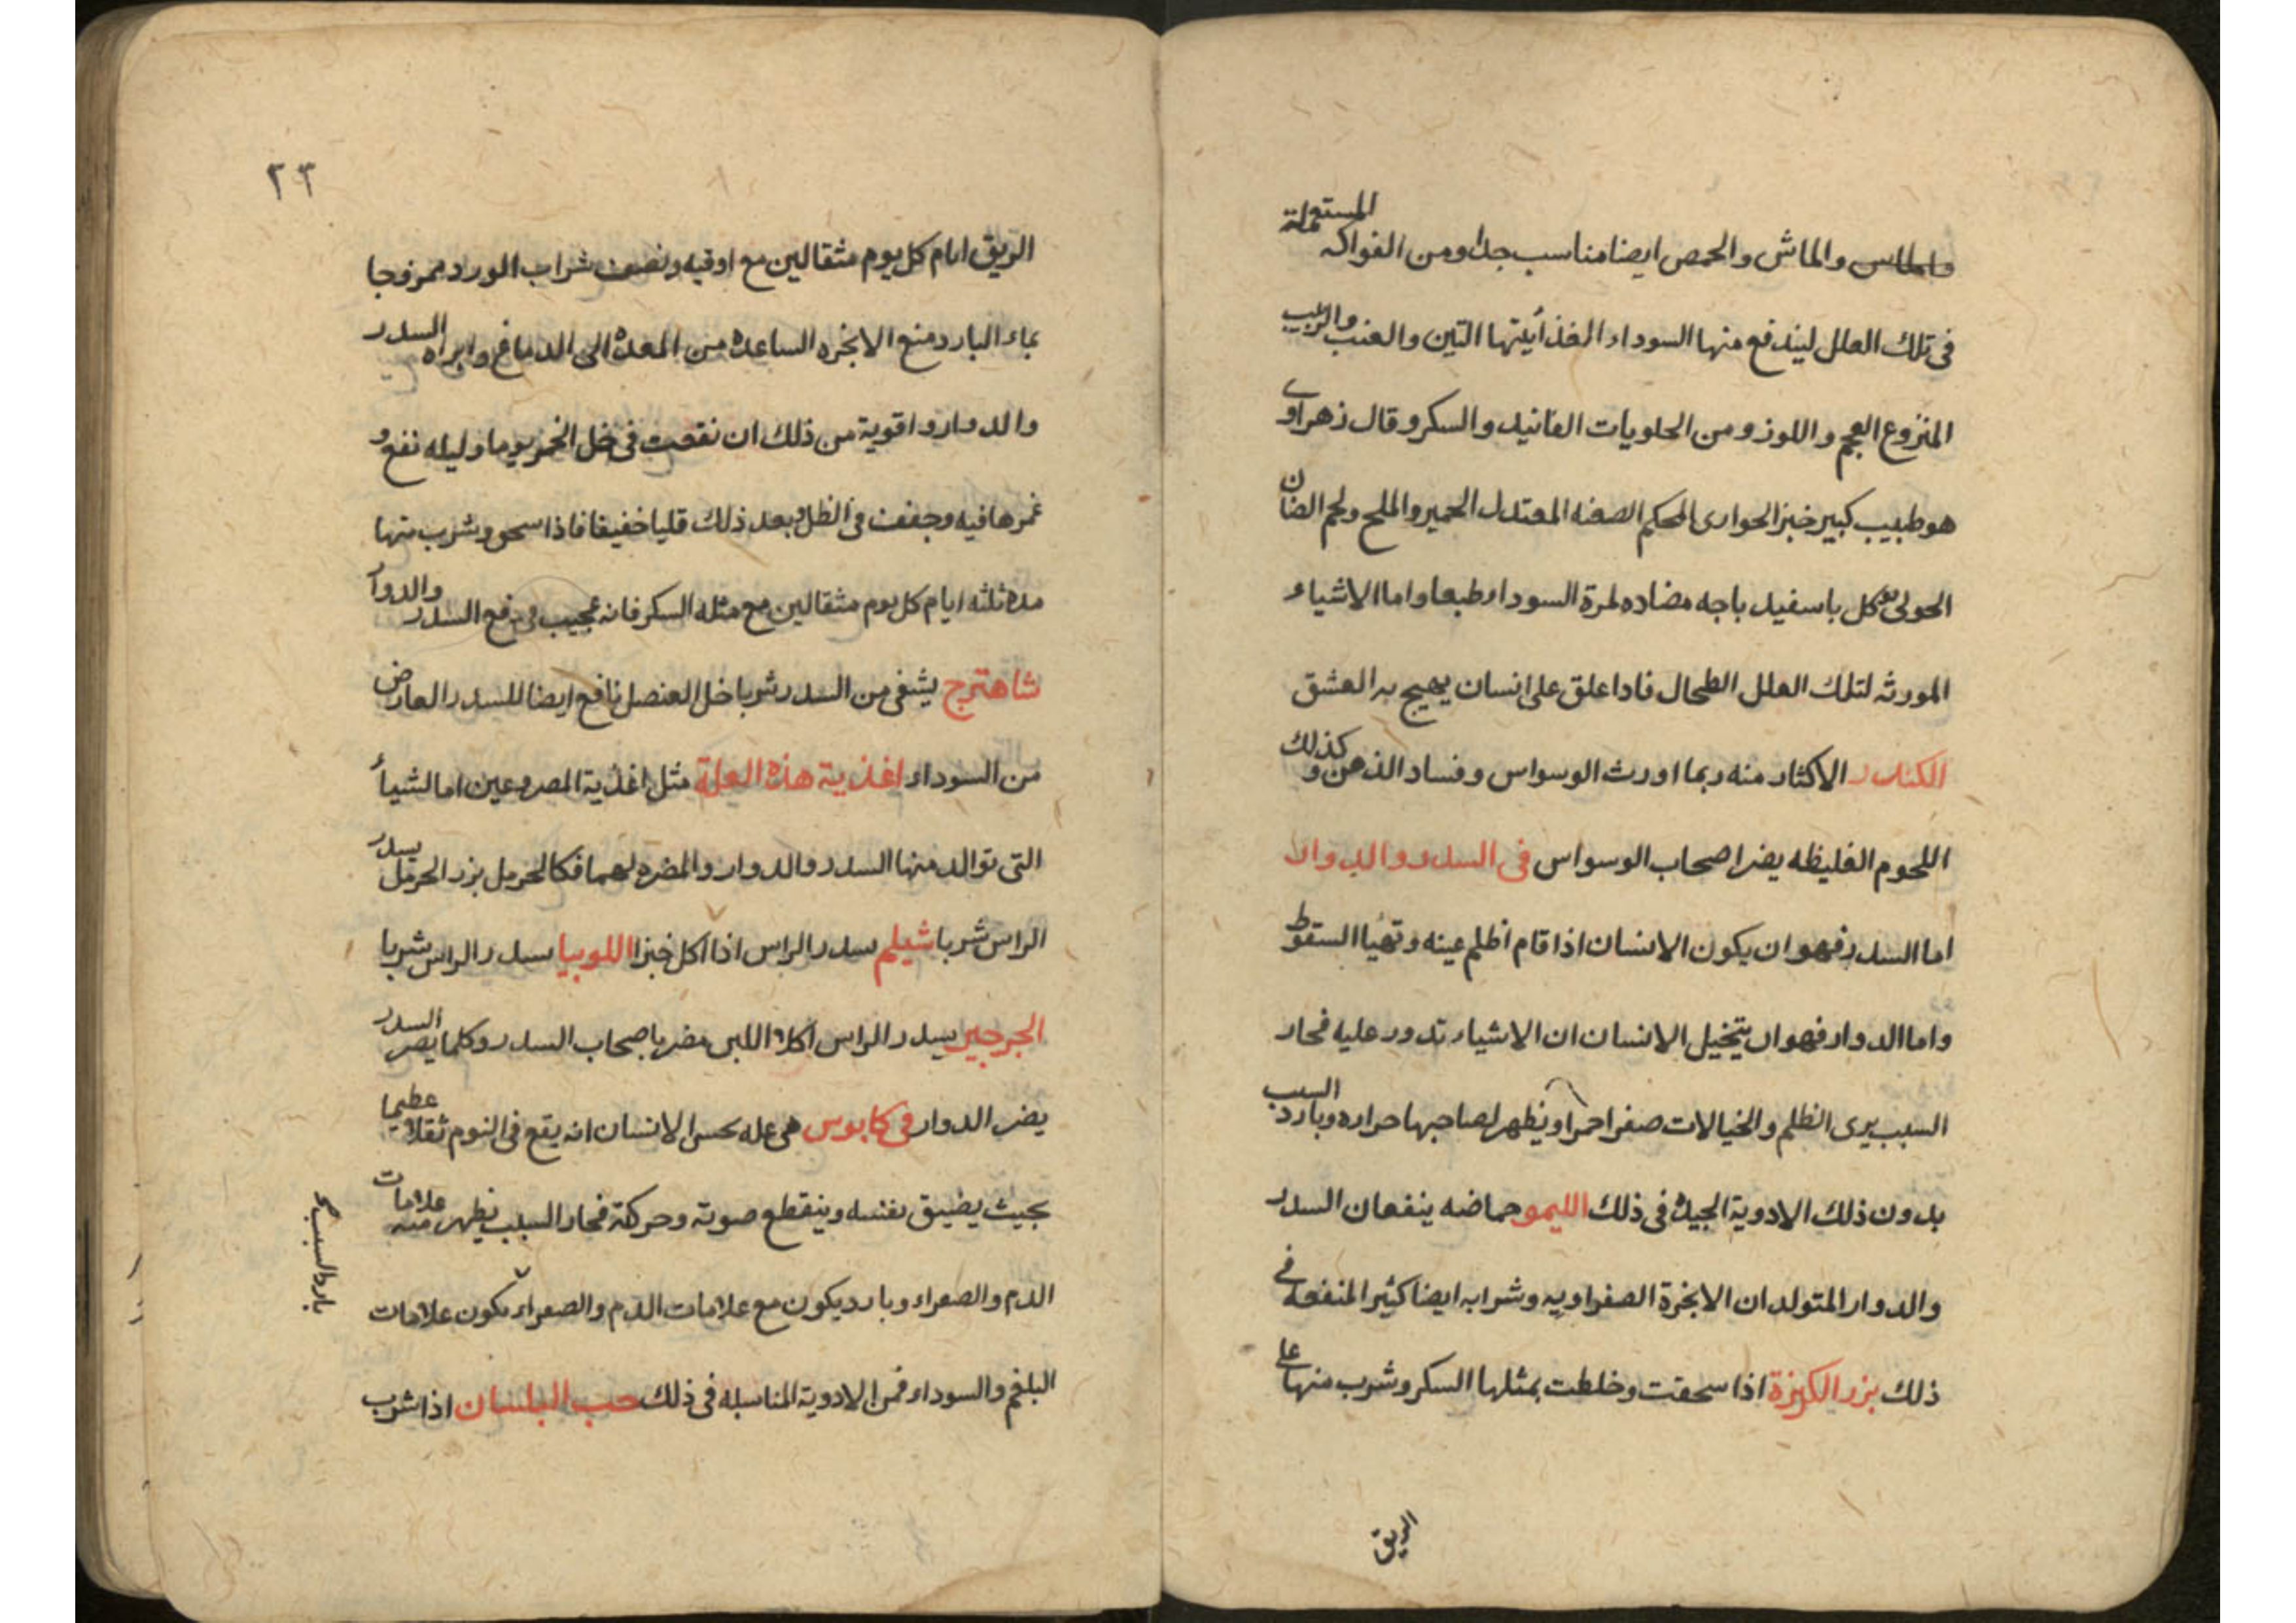 والماش والحمص ايضا مناسب جدا ومن الفواكه المستعملة
فى تلك العلل ليندفع منها السوداء المغذأيتها التين والعنب والزبيب
المنزوع العجم واللوز ومن الحلويات الفانيد والسكر وقال زهراوى
هو طبيب كبير خبز الحوارى المحكم الصفه المعتدل الخمير والملح ولحم الضان
الحولى كل باسفيد باجه مضاده لمرة السوداء طبعا واما الاشياء
المورثه لتلك العلل الطحال فاداعلق على انسان يهيج به العشق
الكندر الاكثار منه ربما اورث الوسواس وفساد الذهن وكذلك
اللحوم الغليظه يضر اصحاب الوسواس فى السدر والدوار
اما السدر فهو ان يكون الانسان اذا قام اظلم عينه وتهيأ السقوط
واما الدوار فهو ان يتخيل الانسان ان الاشياء تدور عليه فحار
السبب يرى الظلم والخيالات صفرا حمرا ويظهر لصاحبها حراره وبارد السبب
بدون ذلك الادوية الجيدة فى ذلك الليمو حماضه ينفعان السدر
والدوار المتولدان الابخرة الصفراويه وشرابه ايضا كثير المنفعه فى
ذلك بزر الكزبرة اذا سحقت وخلطت بمثلها السكر وشرب منها على
الريق
٢٣
الريق ايام كل يوم مثقالين مع اوقيه ونصف شراب الورد ممزوجا
بماء البارد منع الابخره الساعدة من المعدة الى الدماغ وابراه السدر
والدوار واقوية من ذلك ان نقعت فى خل الخمر يوما وليله نفع و
غمرها فيه وجففت فى الظل وبعد ذلك قليا خفيفا فاذا سحق وشرب منها
مدة ثلثه ايام كل يوم مثقالين مع مثله السكر فانه عجيب فى رفع السدر والدوار
شاهترج يشفى من السدر شربا خل العنصل نافع ايضا للسدر العارض
من السوداء اغذية هذه العلة مثل اغذية المصروعين اما الشيأ
التى توالد منها السدر والدوار والمضره لهما فكالحرمل بزر الحرمل يسدر
الراس شربا شيلم يسدر الراس اذا اكل خبزا اللوبيا يسدر الراس شربا
الجرجير يسدر الراس اكلا اللبن مضر باصحاب السدر وكلما يضر السدر
يضر الدوار فى كابوس هى عله يحس الانسان انه يقع فى النوم ثقلا عظيما
بحيث يضيق نفسه وينقطع صوته وحركة فحار السبب يظهر منه علامات
الدم والصفراء وبارد يكون مع علامات الدم والصفراء يكون علامات
البلغم والسوداء فمن الادوية المناسبه فى ذلك حب البلسان اذا شرب
بارد السبب